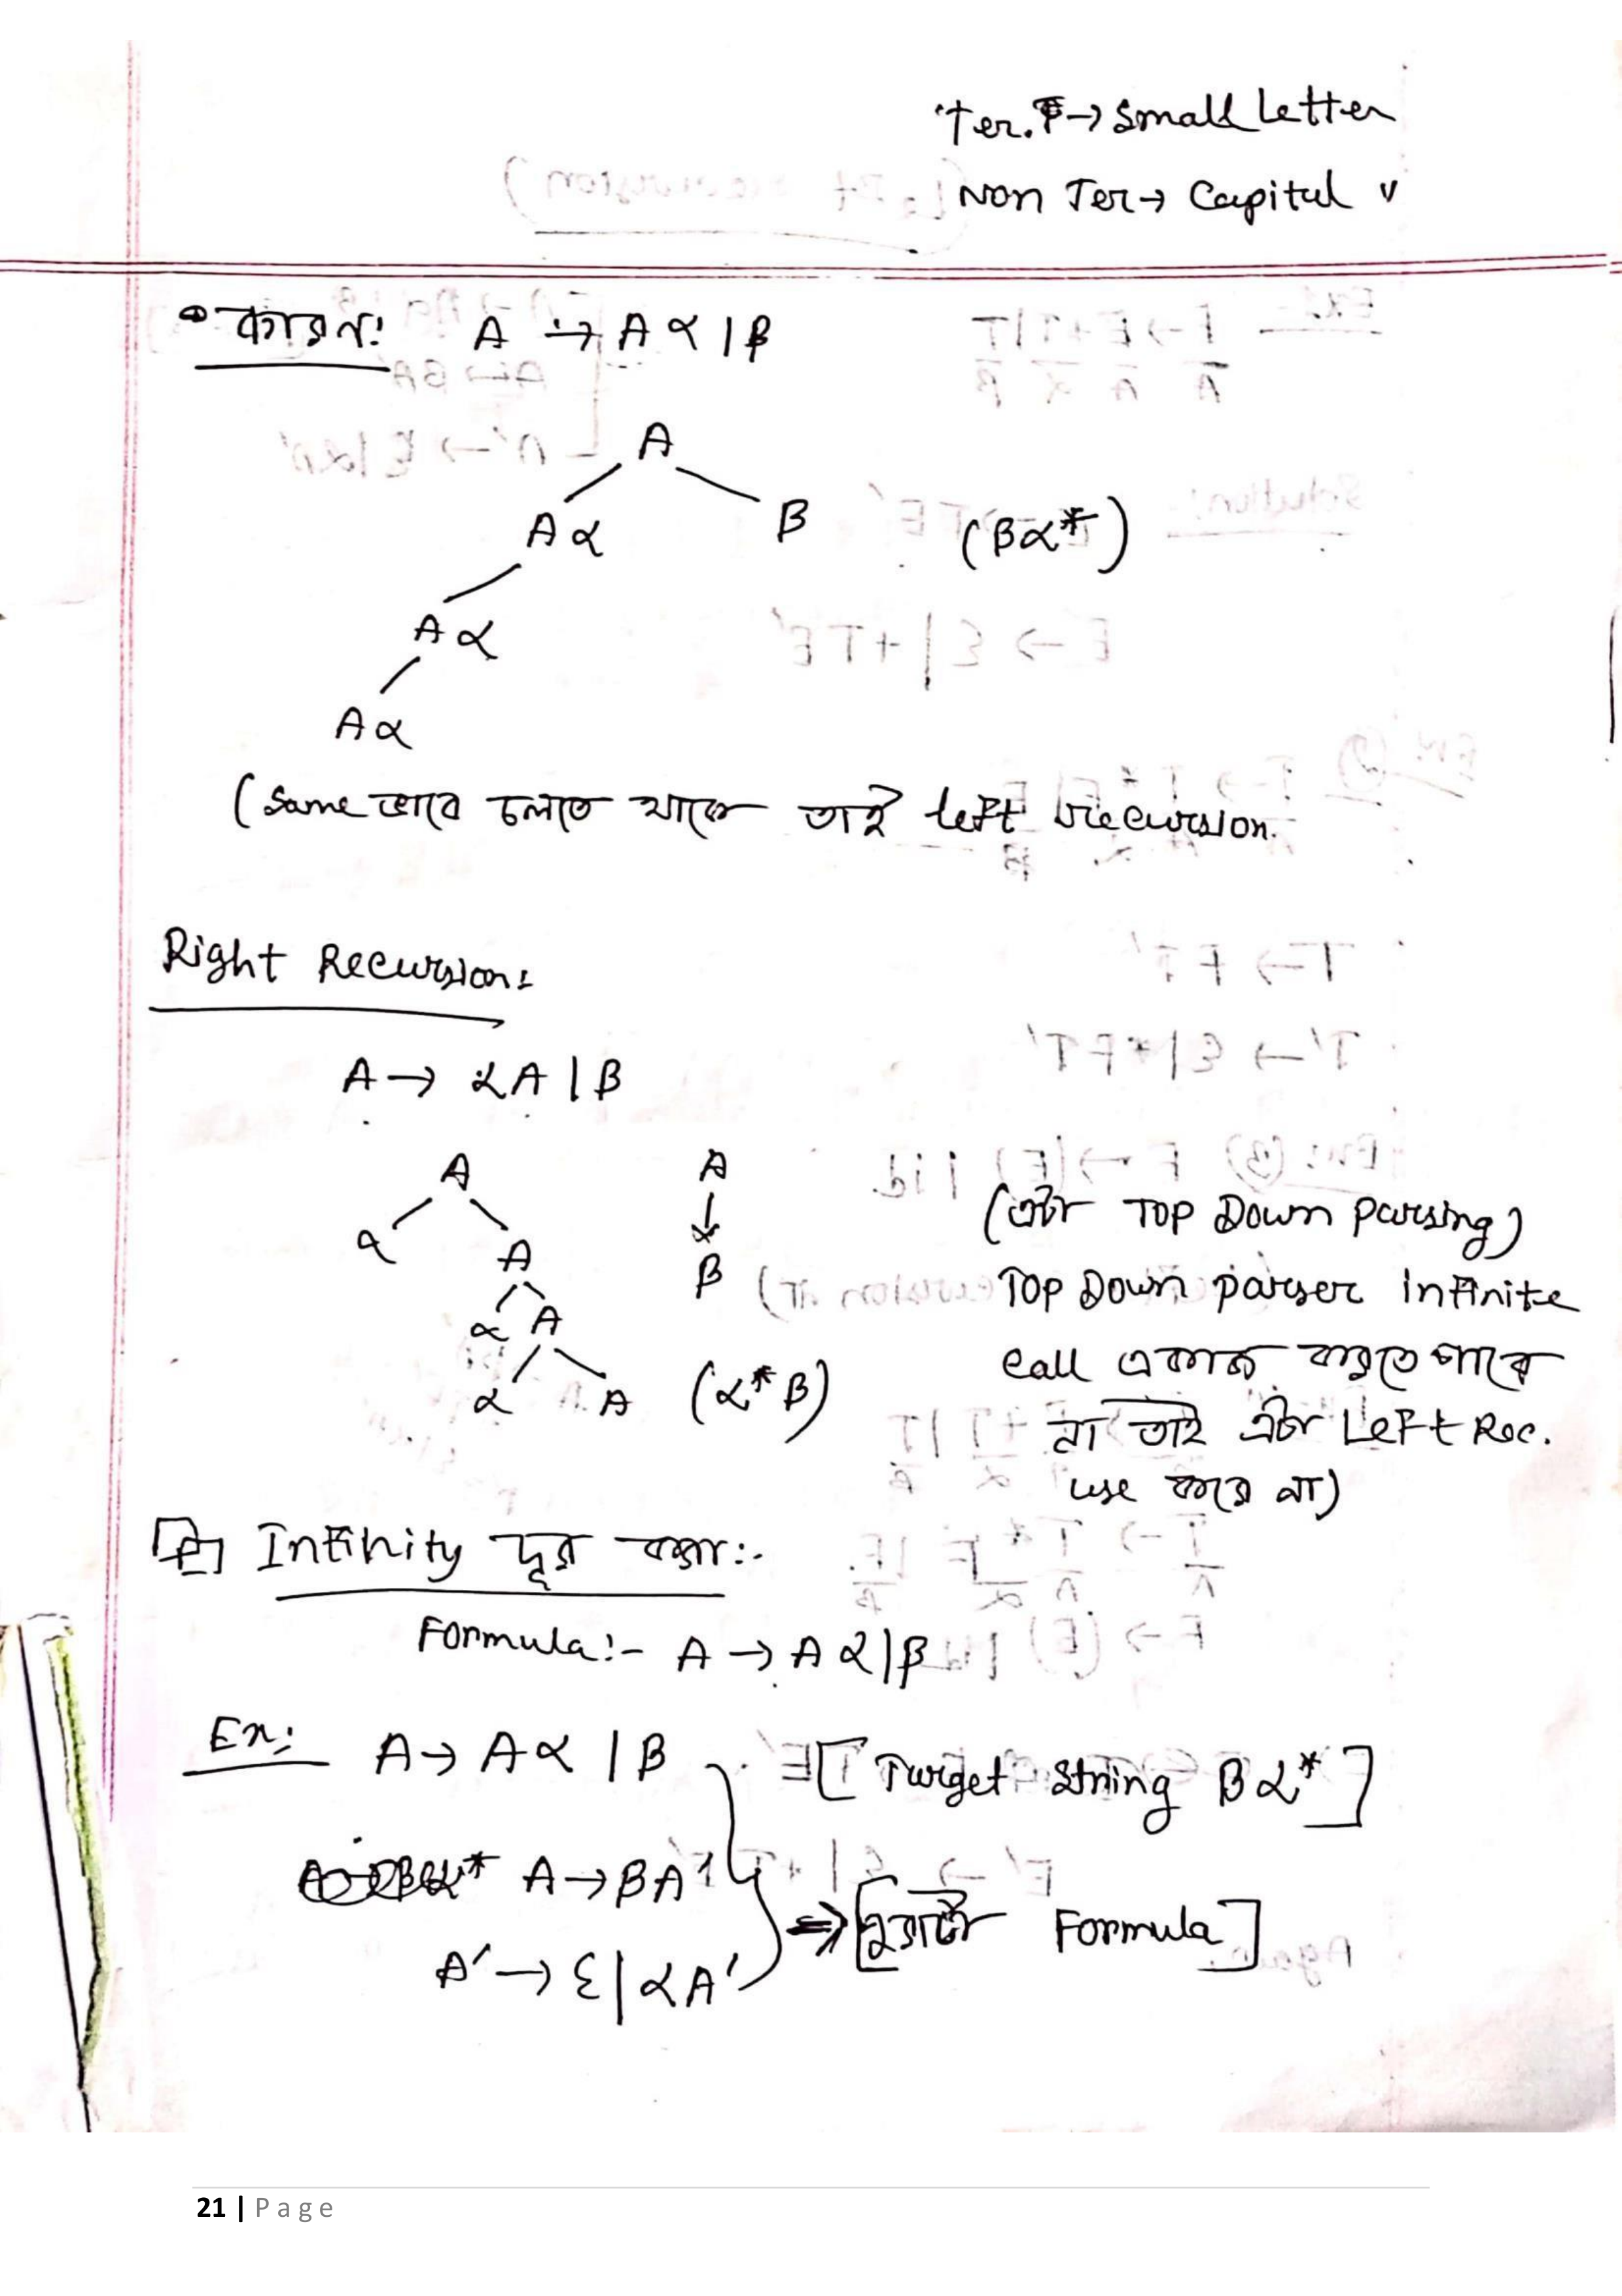 Ter. → Small Letter
Non Ter → Capital
কারন: A → Aα | β
A
Aα β (βα*)
Aα
Aα
(Same ভাবে চলতে থাকে তাই left recursion.
Right Recursion:
A → αA | β
A A
α A β
α A
α A (α*β)
(এটা TOP Down parsing)
TOP Down parser Infinite
call করতে পারে
না তাই এটা Left Rec.
use করে না)
Infinity দূর করা:-
Formula:- A → Aα|β
Ex: A → Aα | β [Target string βα*]
A → βA'
A' → ε | αA' ⇒ [Formula]
21 | Page